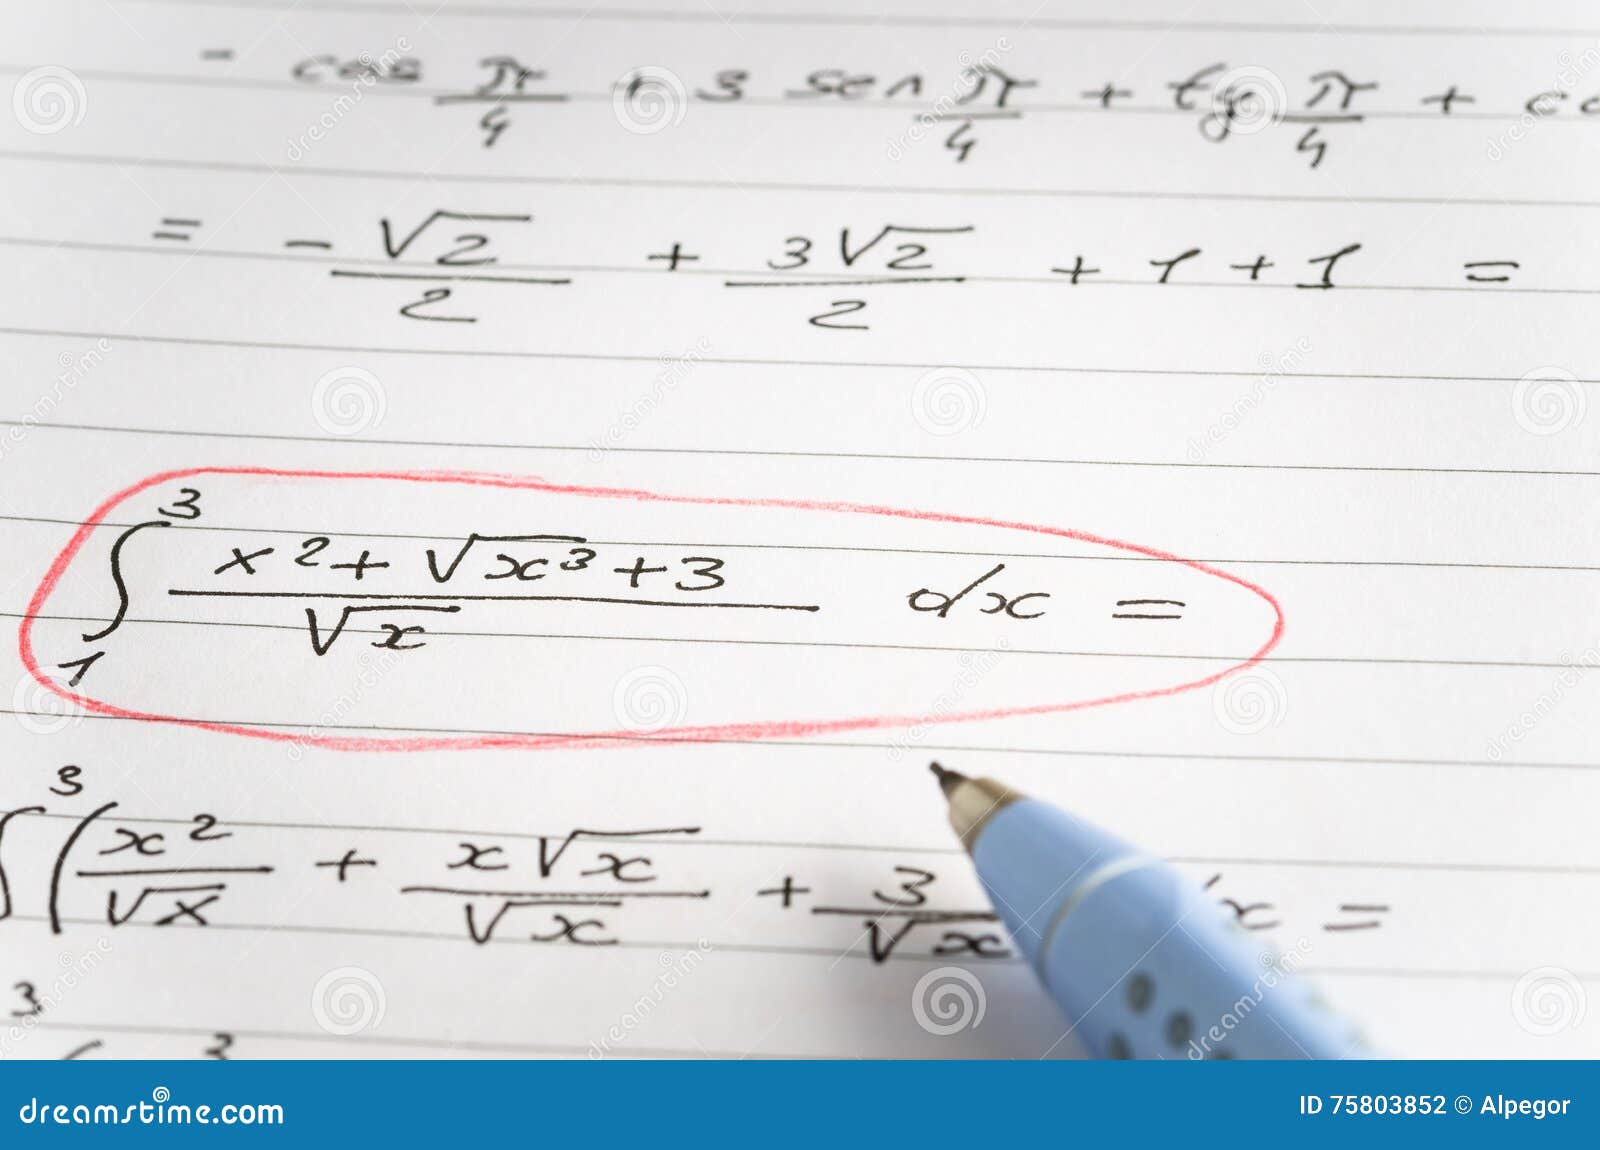 - cos π/4 + 3 sen π/4 + tg π/4 + co
= -√2/2 + 3√2/2 + 1 + 1 =
∫₁³ (x² + √x³ + 3)/√x dx =
∫³ (x²/√x + x√x/√x + 3/√x dx =
3
3
dreamstime.com
ID 75803852 © Alpegor